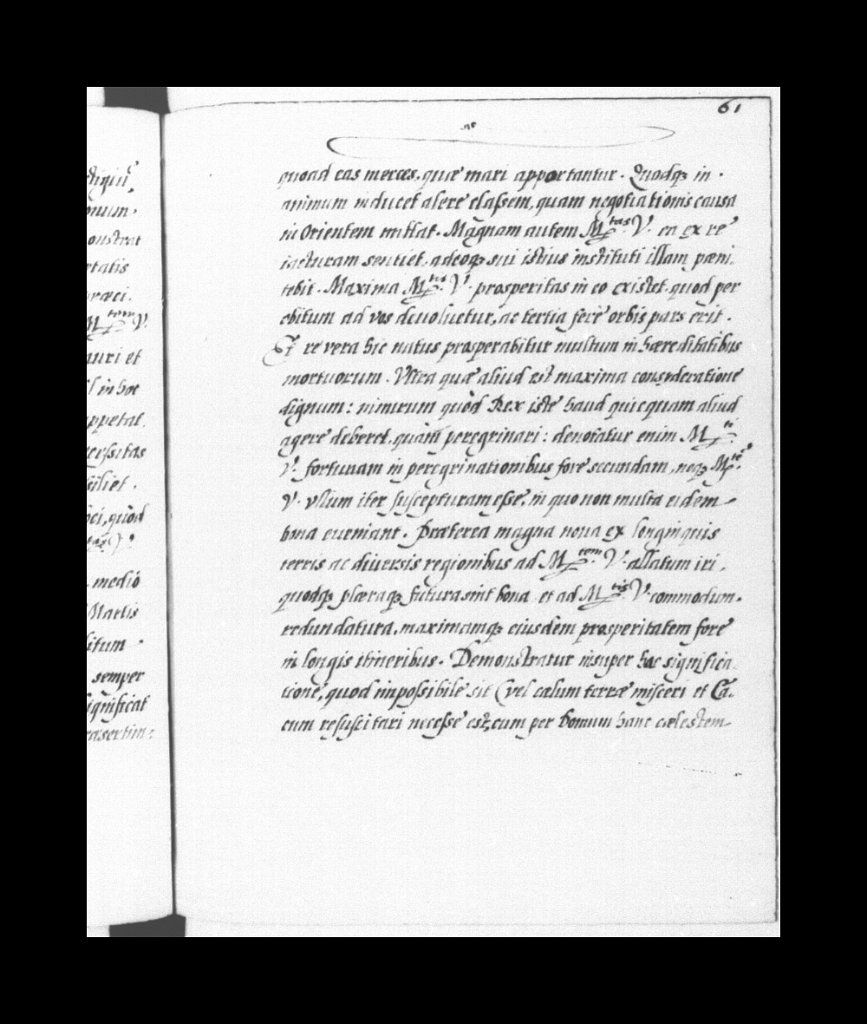 61
quoad eas merces, quæ mari apportantur. Quodqz in
animum inducet alere classem, quam negotiationis causa
in Orientem mittat. Magnam autem M.tas V. ea ex re
iacturam sentiet, adeoqz sui istius instituti illam pœni,
tebit. Maxima M.tis V. prosperitas in eo existet, quod per
obitum ad vos devoluetur, ac tertia ferè orbis pars erit.
Et re vera hic natus prosperabitur multum in hæreditatibus
mortuorum. Vltra quæ aliud est maxima consideratione
dignum: nimirum quòd Rex iste haud quicquam aliud
agere deberet, quàm peregrinari: denotatur enim M.ti
V. fortunam in peregrinationibus fore secundam, neqz M.tē
V. vllum iter suscepturam esse, in quo non multa eidem
bona eueniant. Præterea magna noua ex longinquis
terris ac diuersis regionibus ad M.tem V. allatum iri,
quodqz plæraqz futura sint bona et ad M.tis V. commodum
redundatura, maximamqz eiusdem prosperitatem fore
in longis itineribus. Demonstratur insuper hac significa
tione, quod impossibile sit (vel cælum terræ misceri et Ca,
cum resuscitari necesse est, cum per domum hanc cælestem